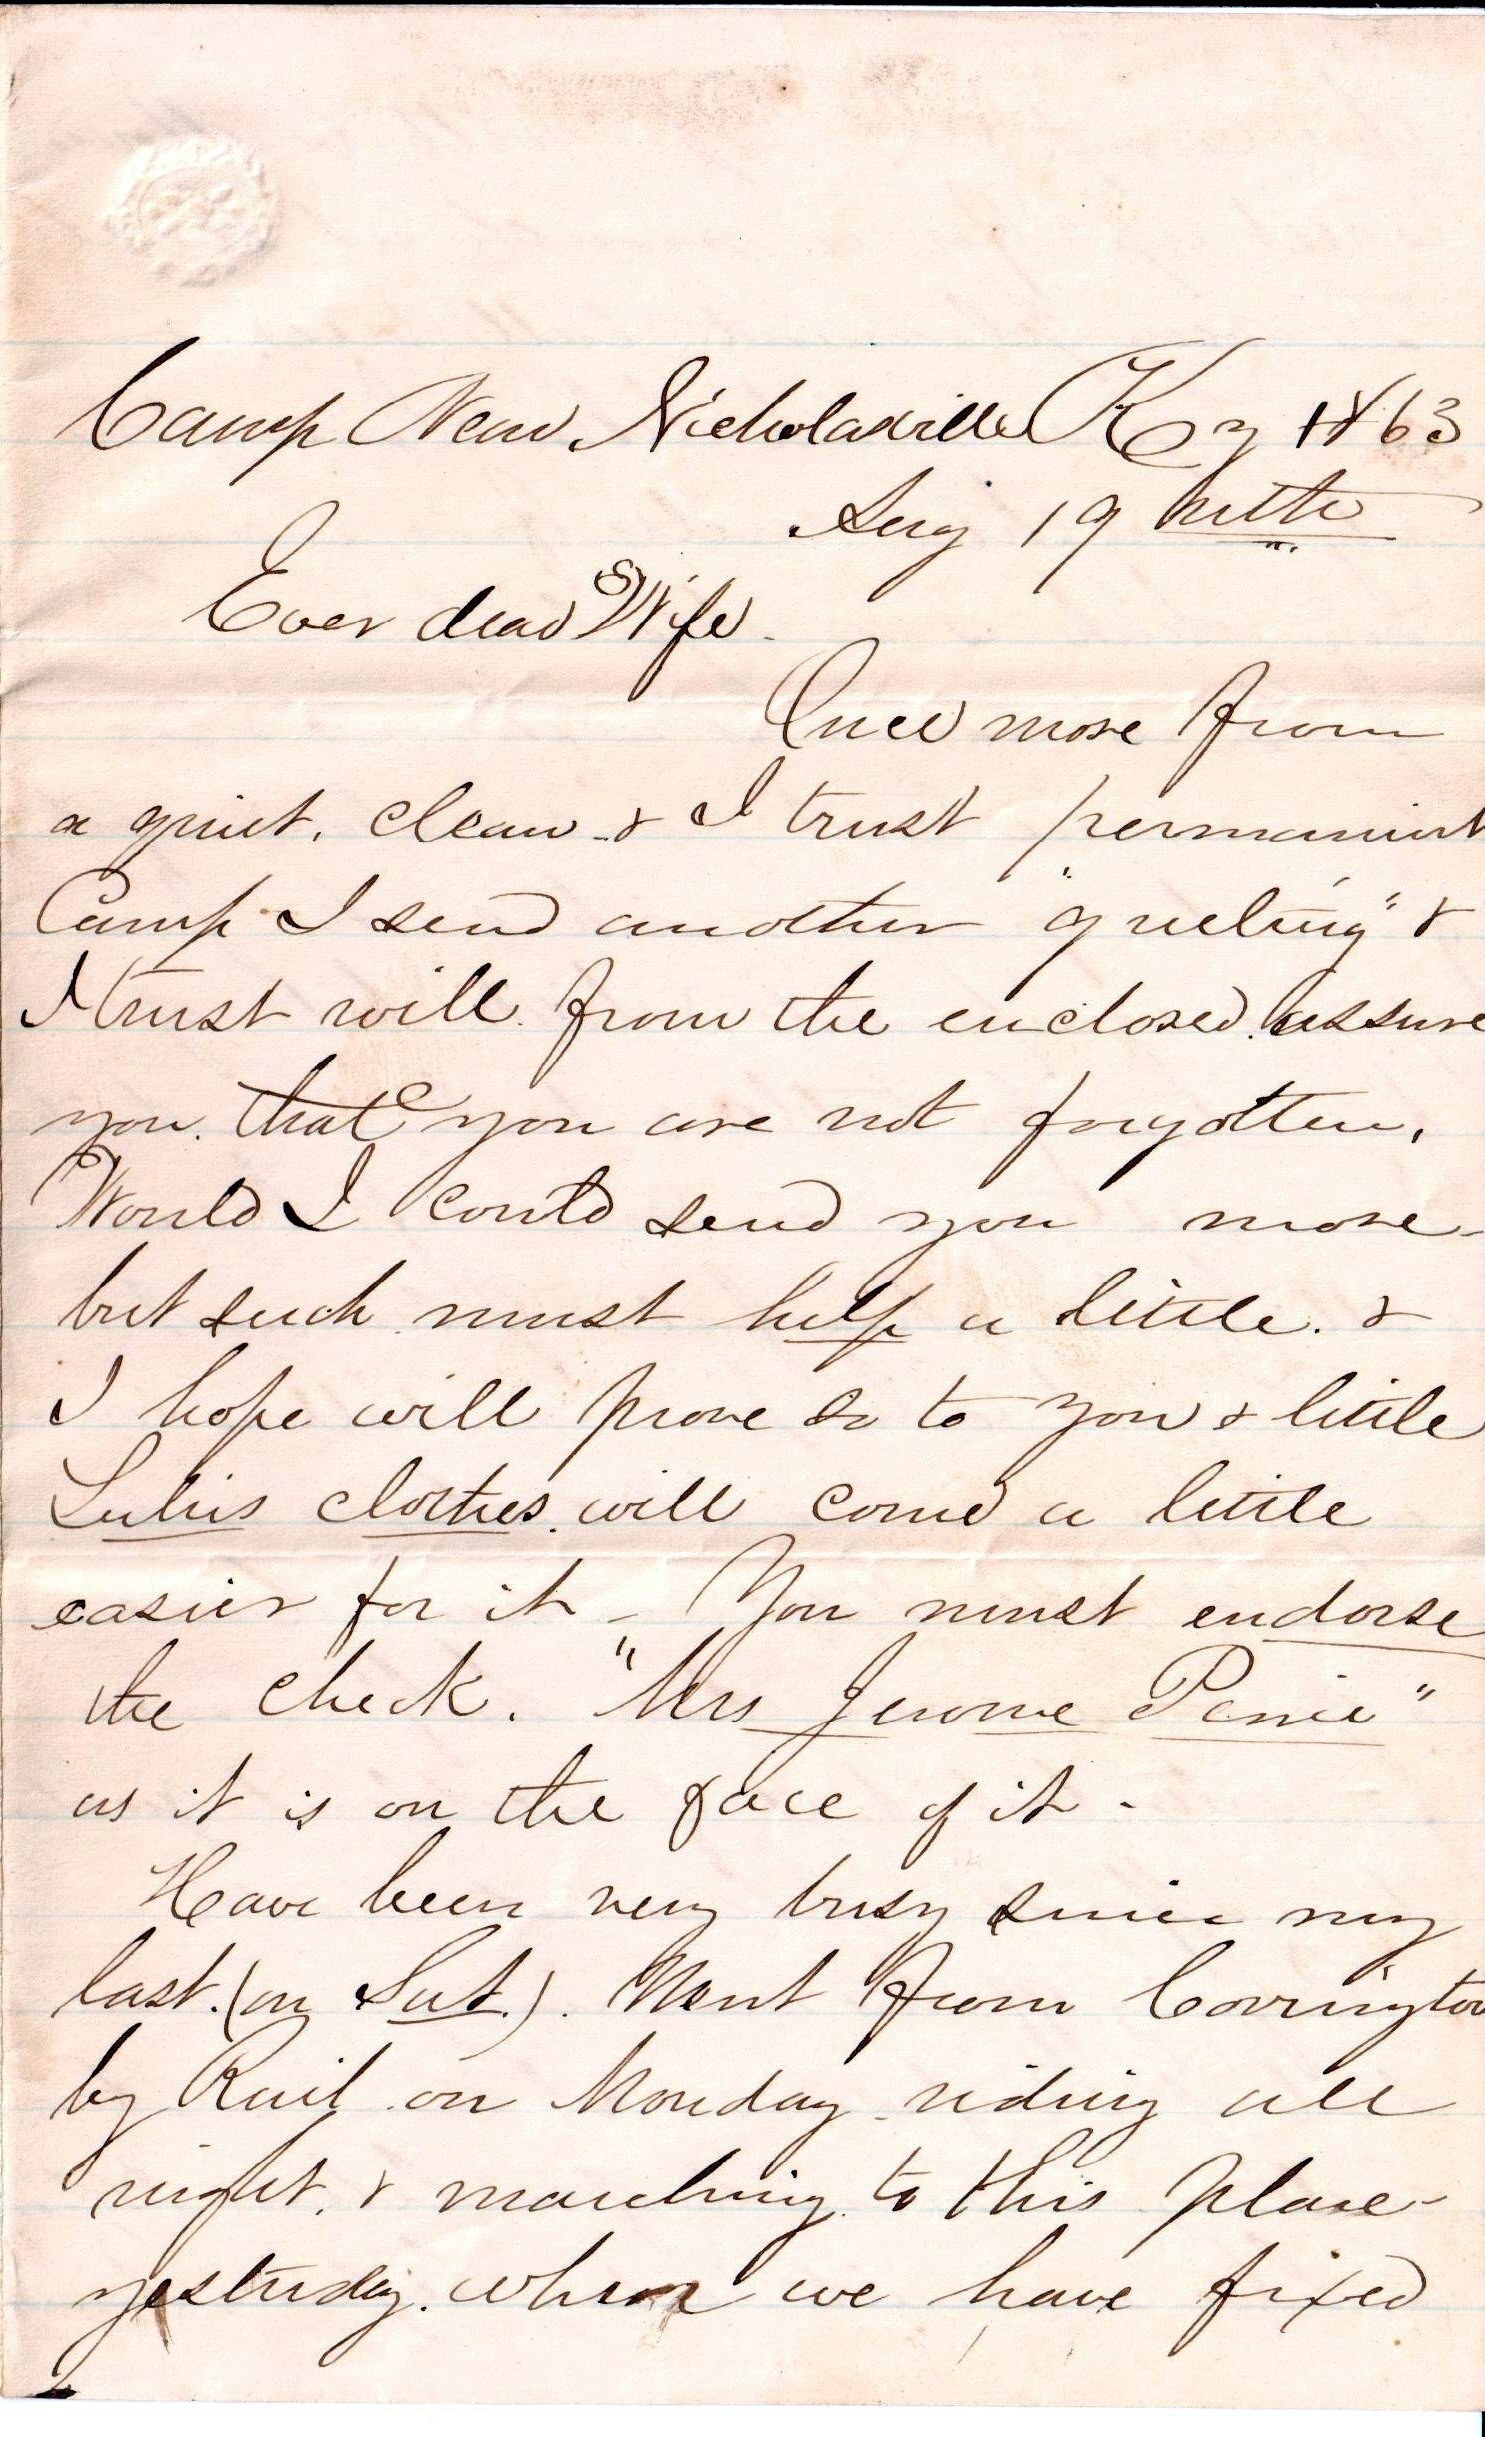 Camp Near Nicholasville Ky 1863
Aug 19
Ever dear Wife.
Once more from
a quiet. clean & I trust permanent
Camp I send another "greeting" &
I trust will from the enclosed assure
you. that you are not forgotten.
Would I could send you more -
but such must help a little. &
I hope will prove so to you & little
clothes. will come a little
easier for it - You must endorse
the check. "Mrs Jerome
as it is on the face of it -
Have been very busy since my
last. (on Sat.). Went from Covington
by Rail on Monday riding all
night. & marching to this place -
yesterday. where we have fixed